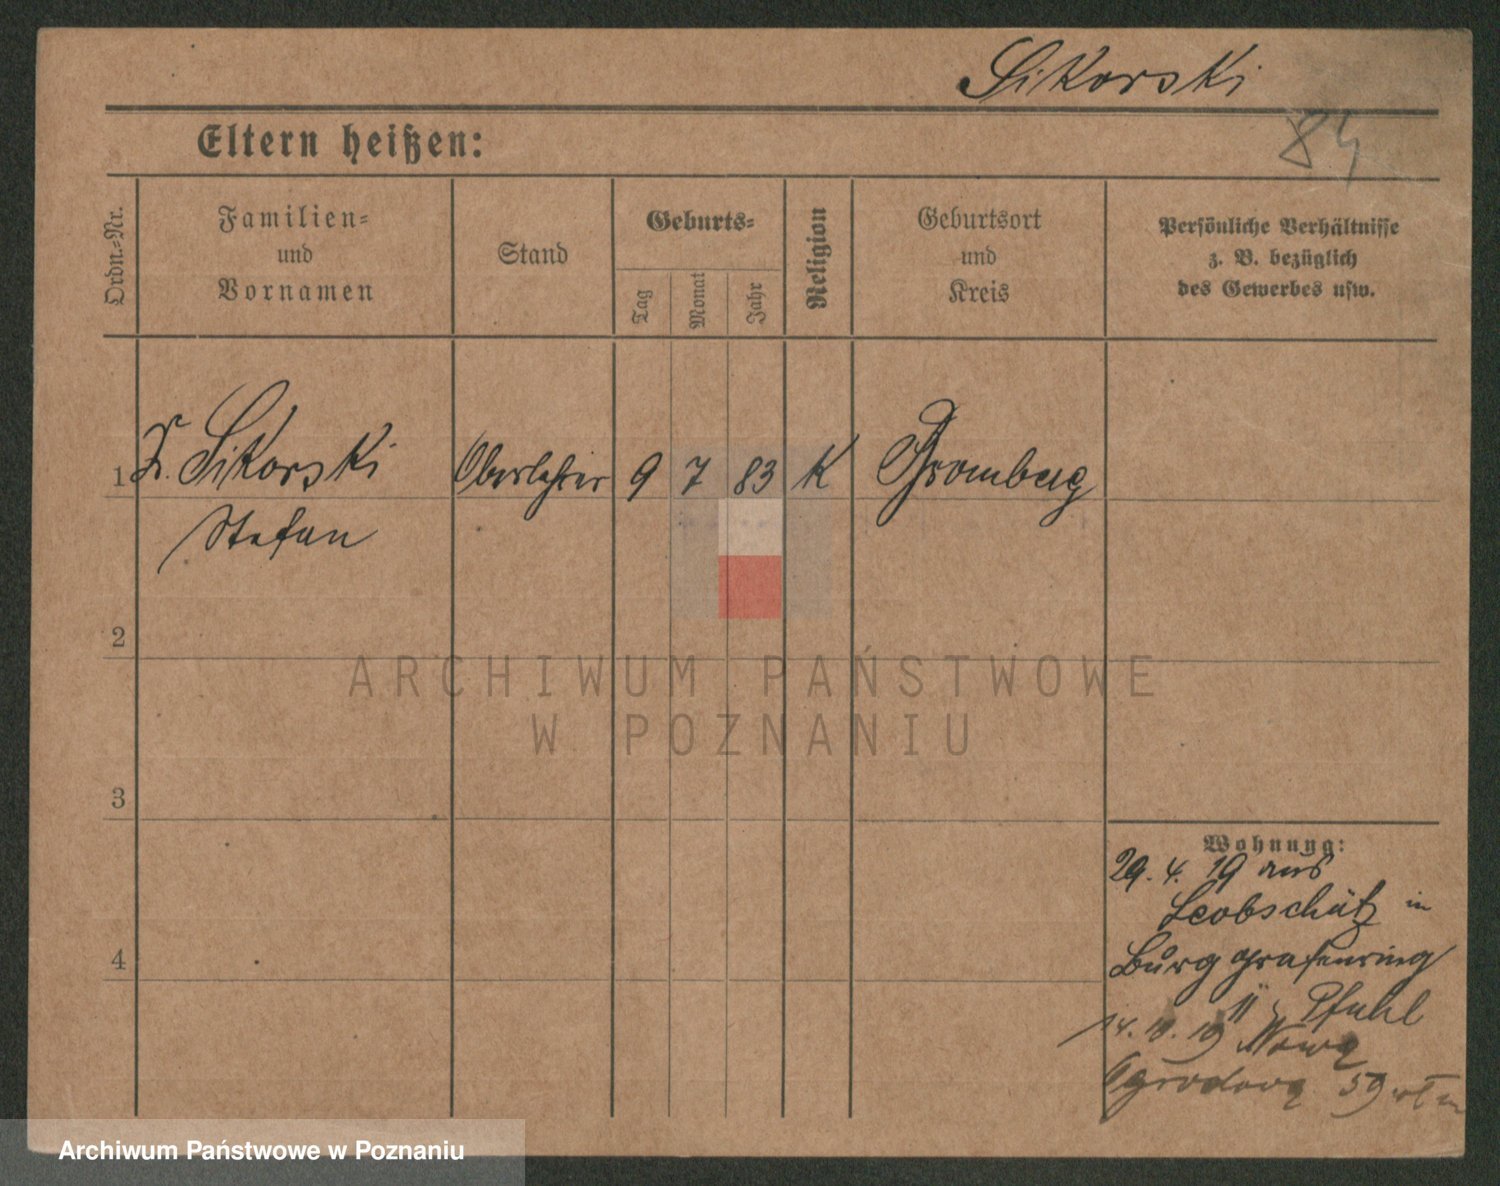 Sikorski
84
Eltern heißen:
Ordn.=Nr.
Familien=
und
Vornamen
Stand
Geburts=
Tag
Monat
Jahr
Religion
Geburtsort
und
Kreis
Persönliche Verhältnisse
z. B. bezüglich
des Gewerbes usw.
1 Dr. Sikorski Oberlehrer 9 7 83 K Bromberg
Stefan
2
3
4
Wohnung:
29. 4. 19 aus
Leobschütz in
Burggrafenring
11 Pfuhl
14. 10. 19 Nowa
Ogrodowa 59
ARCHIWUM PAŃSTWOWE
W POZNANIU
Archiwum Państwowe w Poznaniu